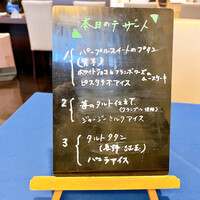 本日のデザート
1 パープルスイートのプリン
(紫芋)
ホワイトショコラとフランボワーズのムースケーキ
ピスタチオアイス
2 苺のタルト仕立て
ジャージーミルクアイス
3 タルトタタン
(長野 紅玉)
バニラアイス